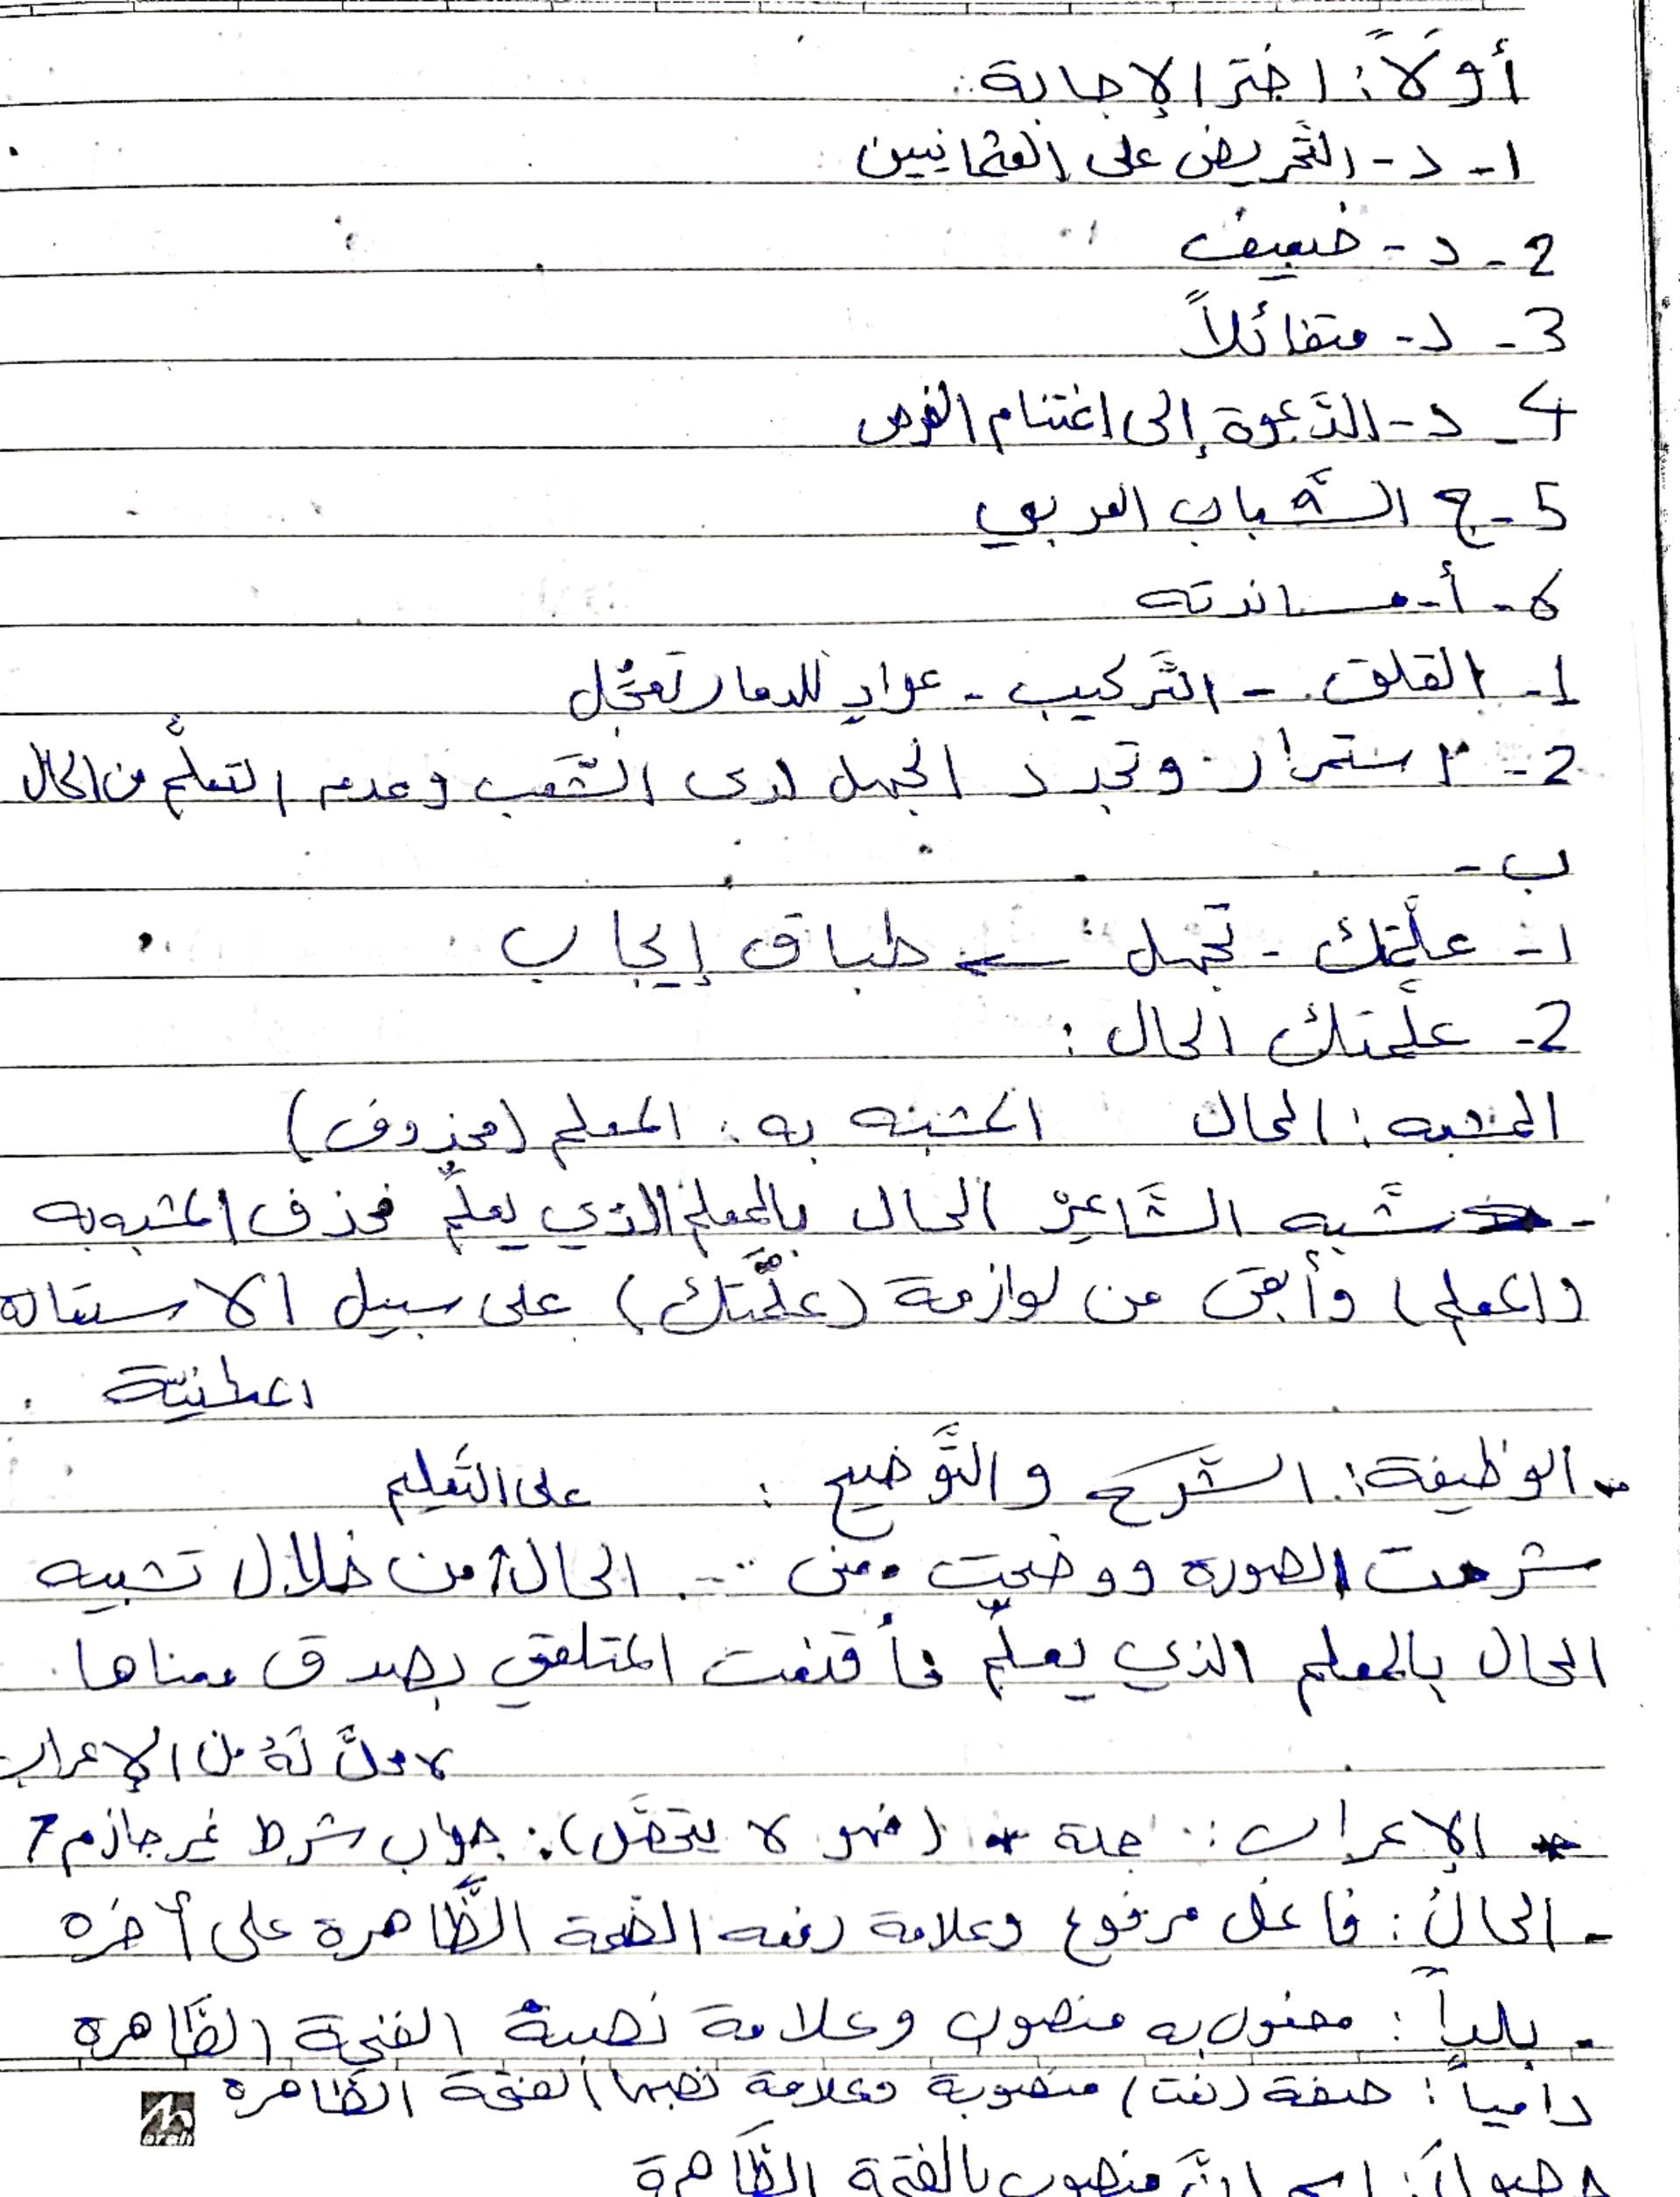 أولاً: اختر الإجابة:
1- د- التَّحريض على العثمانيين
2- د- ضعيف
3- د- متفائلاً
4- د- الدَّعوة إلى اغتنام الفرص
5- ج الشَّباب العربي
6- أ- مساندته
1- القلق - التَّركيب - عوادٍ للدمار تعجَّل
2- استمرار وتجدد الجهل لدى الشَّعب وعدم التعلُّم من الحال
ب -
1- علَّمتك - تجهل ← طباق إيجاب
2- علَّمتك الحال:
المشبه: الحال المشبه به: المعلم (محذوف)
- شبه الشَّاعر الحال بالمعلم الذي يعلِّم فحذف المشبه به
(المعلم) وأبقى من لوازمة (علَّمتك) على سبيل الاستعارة
المكنيّة
- الوظيفة: الشرح والتَّوضيح: على التَّعليم
شرحت الصورة ووضحت معنى .. الحال من خلال تشبيه
الحال بالمعلم الذي يعلِّم فأقنعت المتلقي بصدق معناها
لا محلَّ لَهُ من الإعراب
* الإعراب: جملة * (فهو لا يتحمَّل): جواب شرط غير جازم
- الحالُ: فاعل مرفوع وعلامة رفعه الضمة الظَّاهرة على أخره
- بلداً: مفعول به منصوب وعلامة نصبة الفتحة الظَّاهرة
دامياً: صفة (نعت) منصوبة وعلامة نصبها الفتحة الظَّاهرة
اسم إنَّ منصوب بالفتحة الظَّاهرة